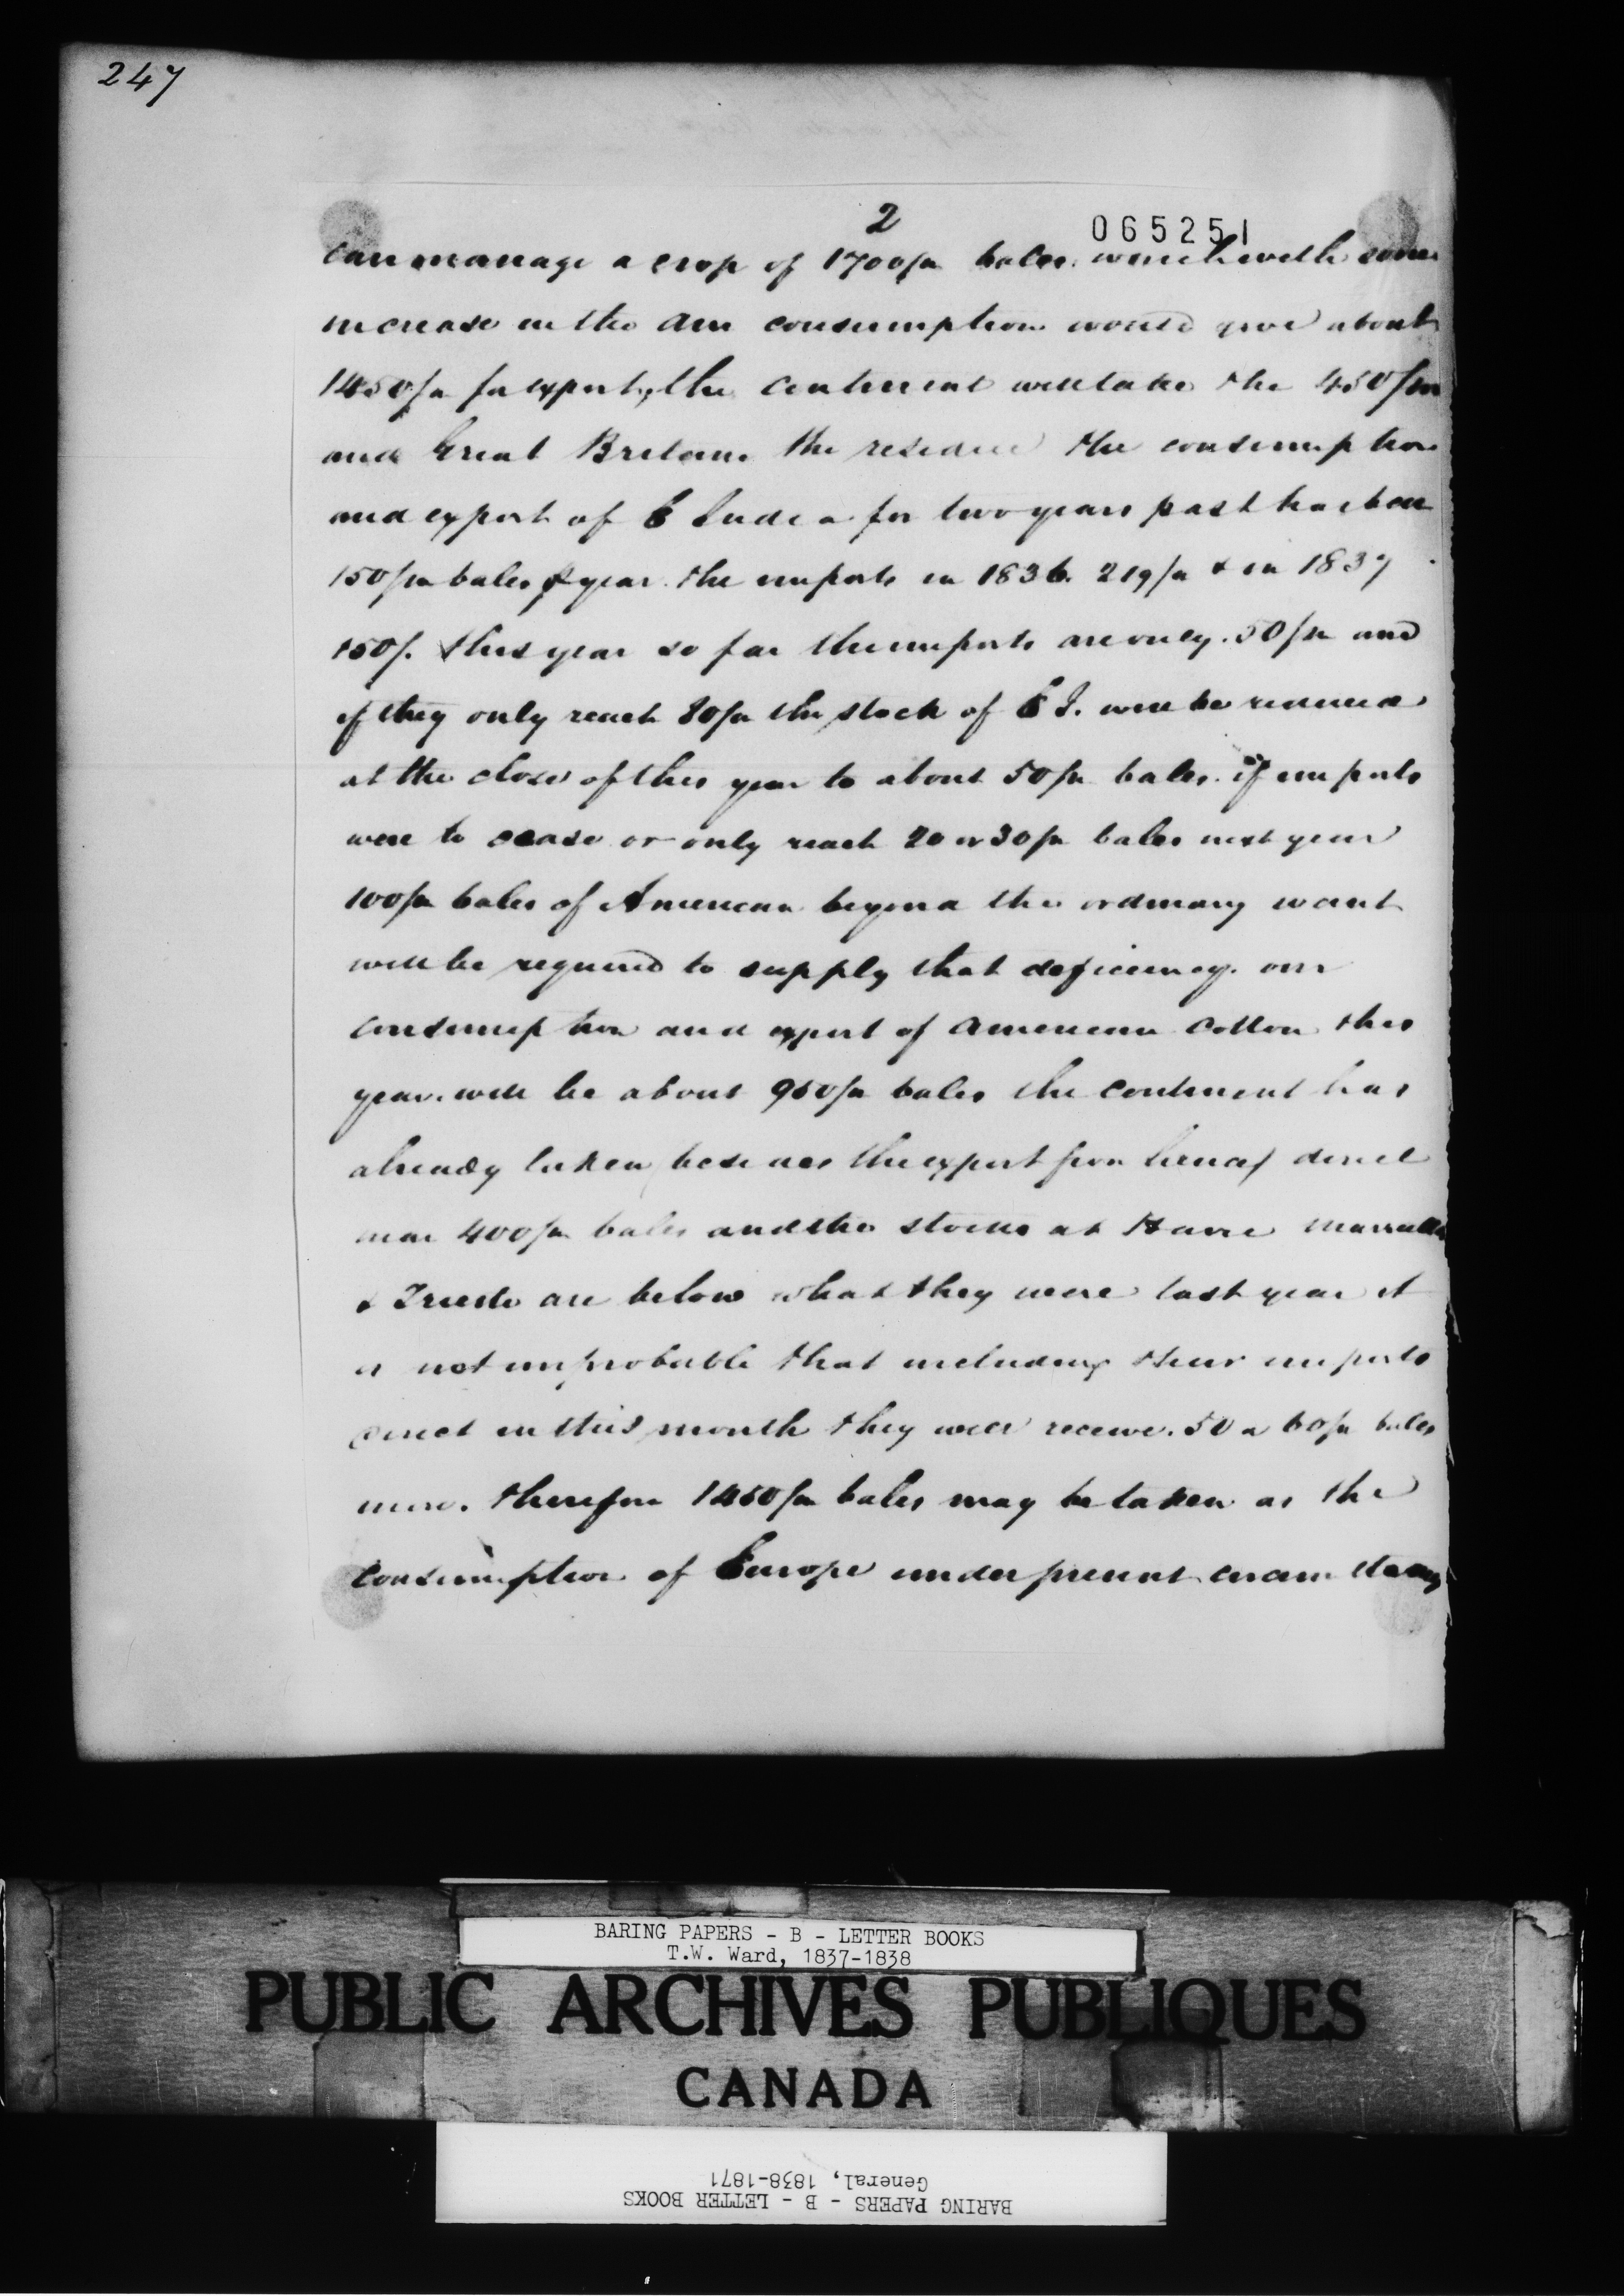 247
2
065251
can manage a crop of 1700/m bales. which with some
increase in the Am consumption would give about
1450/m for export, the Continent will take the 450/m
and Great Britain the residue the consumption
and export of E India for two years past has been
150/m bales P year. the imports in 1836. 219/m & in 1837
150/. this year so far the imports are only. 50/m and
if they only reach 80/m the stock of E I. will be reduced
at the close of this year to about 50/m bales. if imports
were to cease or only reach 20 or 30/m bales next year
100/m bales of American beyond the ordinary want
will be required to supply that deficiency. our
consumption and export of American Cotton this
year. will be about 950/m bales the Continent has
already taken (besides the export from hence) direct
near 400/m bales and the stocks at Havre Marseilles
& Trieste are below what they were last year it
is not improbable that including their imports
direct in this month they will receive. 50 a 60/m bales
more. therefore 1450/m bales may be taken as the
Consumption of Europe under present circumstances
BARING PAPERS - B - LETTER BOOKS
T.W. Ward, 1837-1838
PUBLIC ARCHIVES PUBLIQUES
CANADA
BARING PAPERS - B - LETTER BOOKS
General, 1838-1871